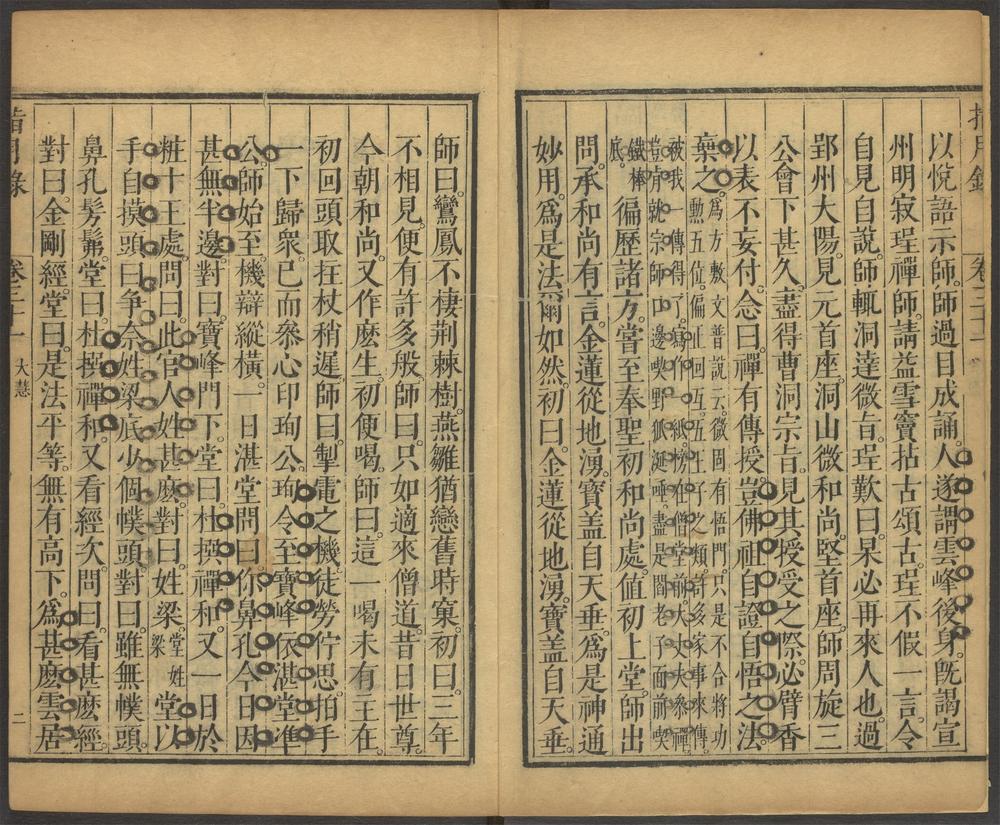 指月錄
卷三十一
以悅語示師。師過目成誦。人遂謂雲峰後身。既謁宣
州明寂珵禪師。請益雪竇拈古頌古。珵不假一言。令
自見自說。師輒洞達微旨。珵歎曰。杲必再來人也。過
郢州大陽。見元首座。洞山微和尚。堅首座。師周旋三
公會下甚久。盡得曹洞宗旨。見其授受之際。必臂香
以表不妄付。念曰。禪有傳授。豈佛祖自證自悟之法。
棄之。為方敷文普說云。微固有悟門。只是不合將功
勳五位。偏正回互。五王子之類。許多家事來傳。
被我一傳得了。寫作一紙。榜在僧堂前。大丈夫參禪。
豈肯就宗師口邊喫野狐涎唾。盡是閻老子面前喫
鐵棒
底。徧歷諸方。嘗至奉聖初和尚處。值初上堂。師出
問。承和尚有言。金蓮從地湧。寶蓋自天垂。為是神通
妙用。為是法爾如然。初曰。金蓮從地湧。寶蓋自天垂。
師曰。鸞鳳不棲荊棘樹。燕雛猶戀舊時窠。初曰。三年
不相見。便有許多般。師曰。只如適來僧道。昔日世尊。
今朝和尚。又作麼生。初便喝。師曰。這一喝未有主在。
初回頭取拄杖稍遲。師曰。掣電之機。徒勞佇思。拍手
一下歸眾。已而參心印珣公。珣令至寶峰依湛堂準
公。師始至。機辯縱橫。一日湛堂問曰。你鼻孔今日因
甚無半邊。對曰。寶峰門下。堂曰。杜撰禪和。又一日於
粧十王處。問曰。此官人姓甚麼。對曰。姓梁。堂姓梁堂以
手自摸頭曰。爭奈姓梁底少個幞頭。對曰。雖無幞頭。
鼻孔髣髴。堂曰。杜撰禪和。又看經次。問曰。看甚麼經。
對曰。金剛經。堂曰。是法平等。無有高下。為甚麼雲居
指月錄
卷三十一
大慧
二